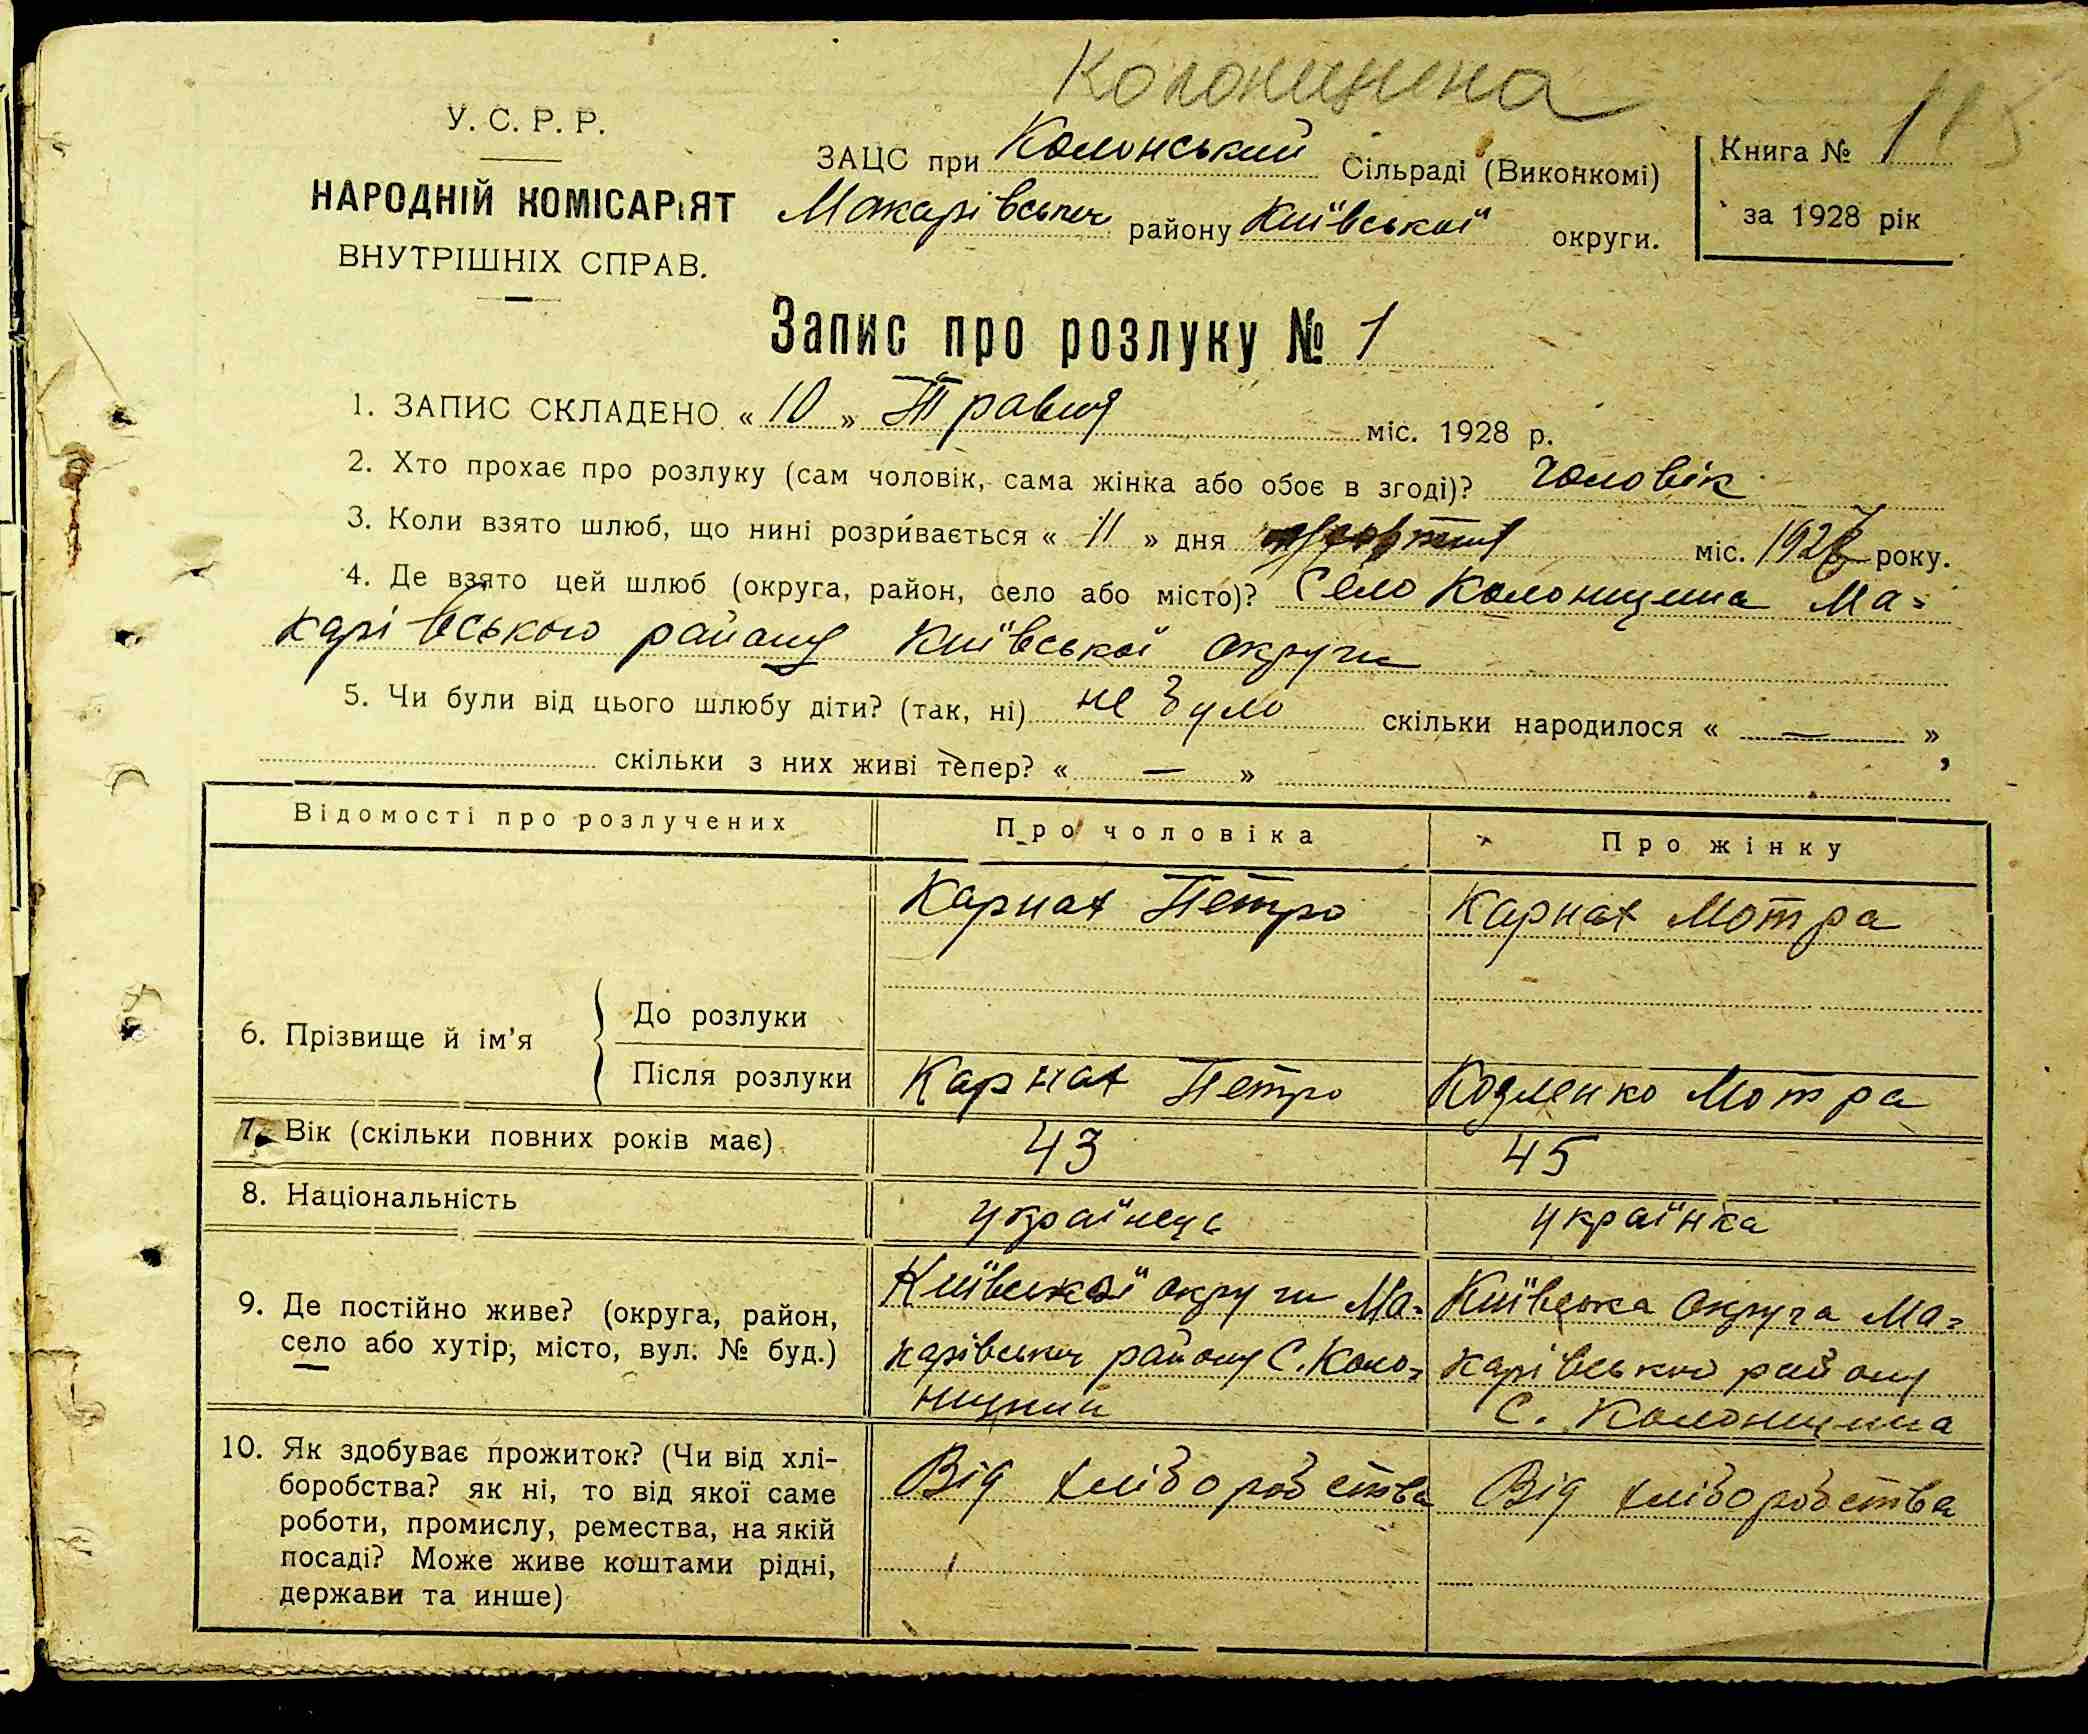 Колонщина
У. С. Р. Р.
НАРОДНІЙ КОМІСАРІЯТ
ВНУТРІШНІХ СПРАВ.
ЗАЦС при Колонський Сільраді (Виконкомі)
Макарівськ району Київської округи.
Книга № 1
за 1928 рік
Запис про розлуку № 1
1. ЗАПИС СКЛАДЕНО « 10 » Травня міс. 1928 р.
2. Хто прохає про розлуку (сам чоловік, сама жінка або обоє в згоді)? Чоловік
3. Коли взято шлюб, що нині розривається « 11 » дня міс. 1927 року.
4. Де взято цей шлюб (округа, район, село або місто)? Село Колонщина Ма=
карівського району Київської округи
5. Чи були від цього шлюбу діти? (так, ні) не було скільки народилося « — »,
скільки з них живі тепер? « — »
Відомості про розлучених Про чоловіка Про жінку
Карнах Петро Карнах Мотра
6. Прізвище й ім'я До розлуки
Після розлуки Карнах Петро Козленко Мотра
7. Вік (скільки повних років має) 43 45
8. Національність українець українка
9. Де постійно живе? (округа, район,
село або хутір, місто, вул. № буд.)
Київської округи Ма=
карівськ району С. Коло=
нщині
Київська Округа Ма=
карівської району
С. Колонщина
10. Як здобуває прожиток? (Чи від хлі-
боробства? як ні, то від якої саме
роботи, промислу, ремества, на якій
посаді? Може живе коштами рідні,
держави та инше)
Від хліборобства
Від хліборобства